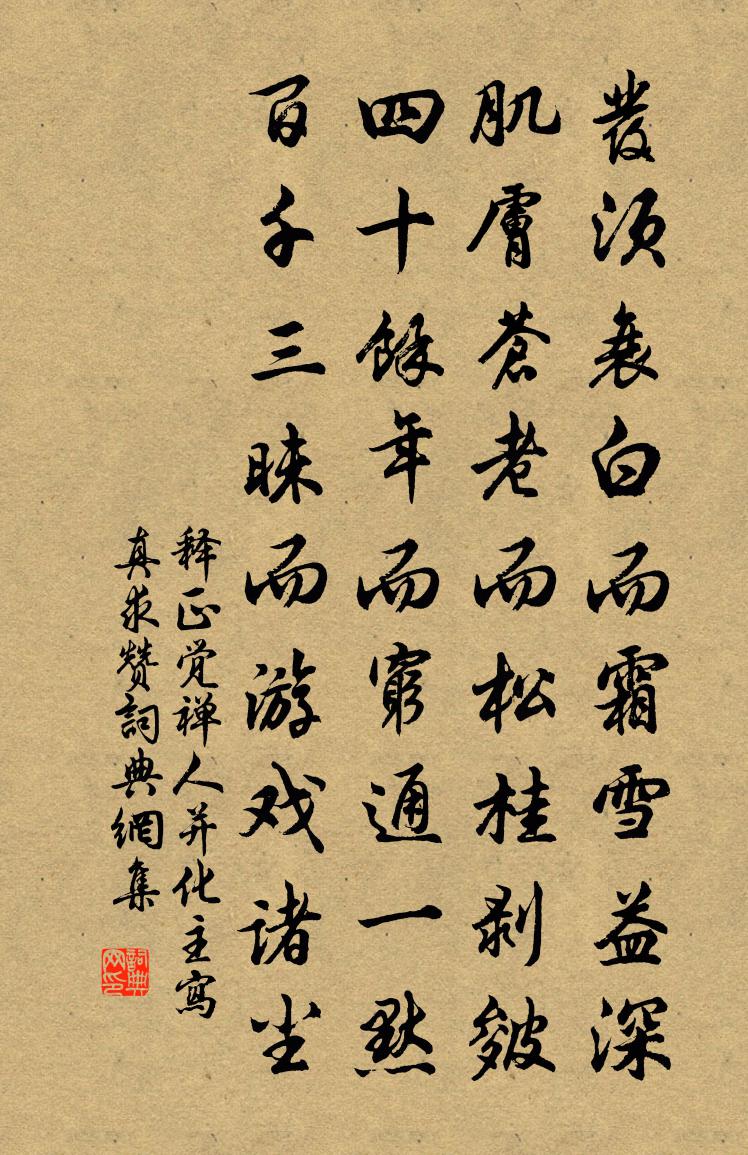 發须衰白而霜雪益深
肌膚蒼老而松桂剥皴
四十餘年而窮通一默
百千三昧而游戏諸尘
释正觉禅人并化主寫
真求赞詞典網集
詞典网印